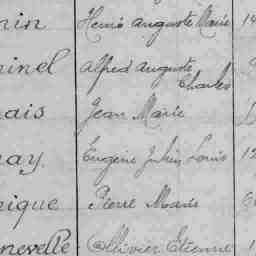 nin Henri Auguste Marie 14
inel Alfred Auguste
Charles
ais Jean Marie
nay Eugène Julien Louis 12
nique Pierre Marie
nevelle Ollivier Etienne 1